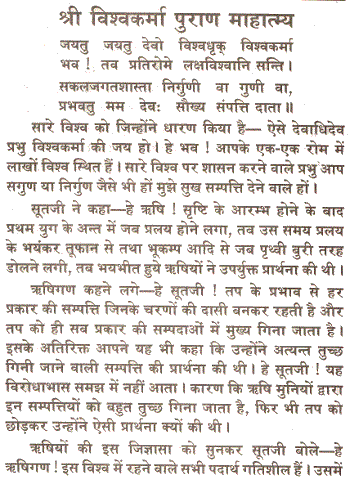 श्री विश्वकर्मा पुराण माहात्म्य
जयतु जयतु देवो विश्वधृक् विश्वकर्मा
भव ! तव प्रतिरोमे लक्षविश्वानि सन्ति।
सकलजगतशास्ता निर्गुणी वा गुणी वा,
प्रभवतु मम देवः सौख्य संपत्ति दाता॥
सारे विश्व को जिन्होंने धारण किया है— ऐसे देवाधिदेव
प्रभु विश्वकर्मा की जय हो। हे भव ! आपके एक-एक रोम में
लाखों विश्व स्थित हैं। सारे विश्व पर शासन करने वाले प्रभु आप
सगुण या निर्गुण जैसे भी हों मुझे सुख सम्पत्ति देने वाले हों।
सूतजी ने कहा—हे ऋषि ! सृष्टि के आरम्भ होने के बाद
प्रथम युग के अन्त में जब प्रलय होने लगा, तव उस समय प्रलय
के भयंकर तूफान से तथा भूकम्प आदि से जब पृथ्वी बुरी तरह
डोलने लगी, तब भयभीत हुये ऋषियों ने उपर्युक्त प्रार्थना की थी।
ऋषिगण कहने लगे—हे सूतजी ! तप के प्रभाव से हर
प्रकार की सम्पत्ति जिनके चरणों की दासी बनकर रहती है और
तप को ही सब प्रकार की सम्पदाओं में मुख्य गिना जाता है।
इसके अतिरिक्त आपने यह भी कहा कि उन्होंने अत्यन्त तुच्छ
गिनी जाने वाली सम्पत्ति की प्रार्थना की थी। हे सूतजी ! यह
विरोधाभास समझ में नहीं आता। कारण कि ऋषि मुनियों द्वारा
इन सम्पत्तियों को बहुत तुच्छ गिना जाता है, फिर भी तप को
छोड़कर उन्होंने ऐसी प्रार्थना क्यों की थी।
ऋषियों की इस जिज्ञासा को सुनकर सूतजी बोले—हे
ऋषिगण ! इस विश्व में रहने वाले सभी पदार्थ गतिशील हैं। उसमें